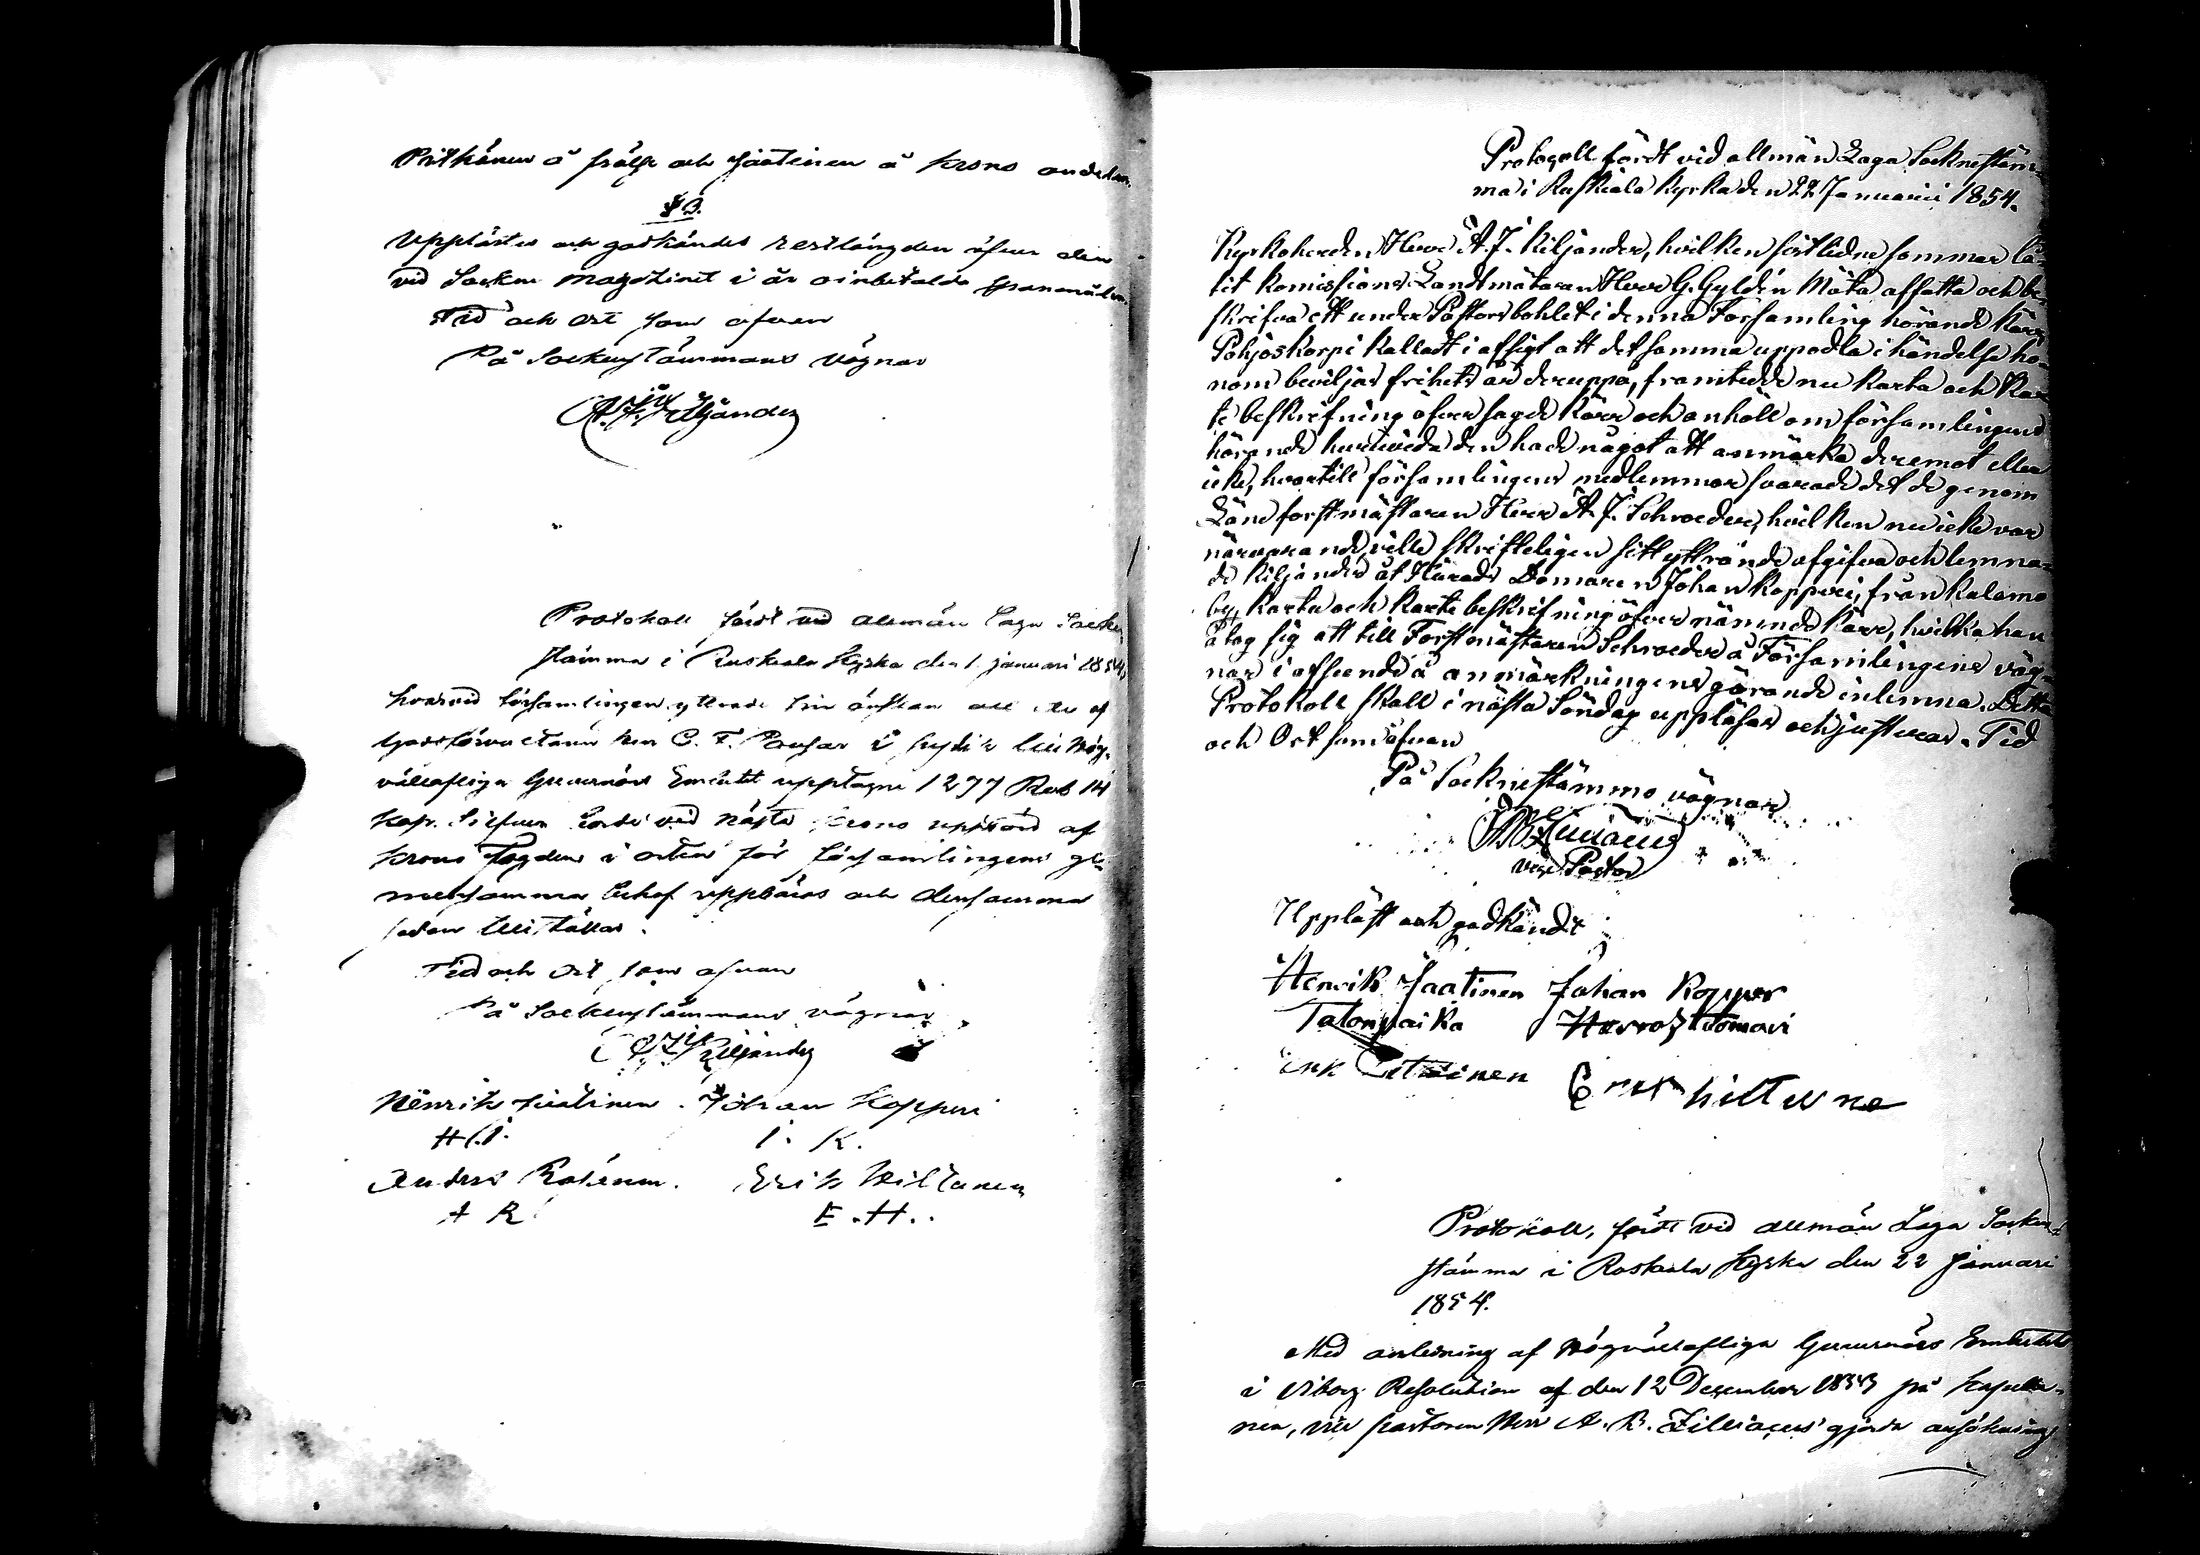 Pitkänen å frälse och Jaatinen å krono andelen.
§ 3.
Upplästes och godkändes restlängden öfver den
vid Sockne magazinet i år oinbetalda spanmålen.
Tid och ort som ofvan
På Sockenstämmans vägnar
A. J. Kiljander
Protokoll fördt vid allmän Laga Socken
stämma i Ruskeala Kyrka den 1 januari 1854,
hvarvid församlingen yttrade sin önskan att de af
Godsförvaltaren Herr C. F.
vällofliga Guvernörs Embetet upptagne 1277 Rub 14
kop. Silfver borde vid nästa krono uppbörd af
krono Fogden i orten för församlingens ge-
mensamma behof uppbäras och densamma
sedan tillställas.
Tid och Ort som ofvan
På Sockenstämmans vägnar
A. J. Kiljander
Henrik Jaatinen. Johan Kopperi
H. J. J. K.
Anders Erik Hiltunen
A R E. H.
Protocoll fördt vid allmän Laga Socknestäm-
ma i Ruskeala Kyrka den 22 Januarii 1854.
Kyrkoherden Herr A. J. Kiljander, hvilken sistlidne sommar lå-
tit Komissions Landtmätaren Herr G. Gyldén Mäta affatta och be-
skrifva ett under Pastors bohlet i denna Församling hörande Kärr
Pohjoskorpi kalladt i afsigt att detsamma uppodla i händelse ho-
nom beviljas frihets år deruppå, framtedde nu karta och Kar-
te beskrifning öfver sagde Kärr och anhöll om församlingens
hörande huruvida den hade något att anmärka deremot eller
icke, hvartill församlingens medlemmar svarade det de genom
Läne forstmästaren Herr A. J. Schroeder, hvilken nu icke var
närvarande, ville skrifteligen sitt yttrande afgifva och lemna-
de Kiljander åt Härads Domaren Johan Kopperi, från Kalamo
by, Karta och Karte beskrifning öfver nämnde Kärr, hvilka han
åtog sig att till Forstmästaren Schroeder å Församlingens väg-
nar i afseende å anmärkningens görande inlemna. Detta
Protokoll skall i nästa Söndag uppläsas och justeras. Tid
och Ort som ofvan
På Socknestämmo vägnar
A B Zilliacus
vice Pastor
Uppläst och godkändt
Henrik Jaatinen Johan Kopper
Talonpoika Herroztomari
Erik hiltune
Protokoll, fördt vid allmän Laga Socken-
stämma i Ruskeala Kyrka den 22 Januari
1854.
Med anledning af Högvällofliga Guvernörs Embetets
i Viborg Resolution af den 12 December 1853 på kapella-
nen, vice pastoren Herr A. B. Zilliacus' gjorda ansökning